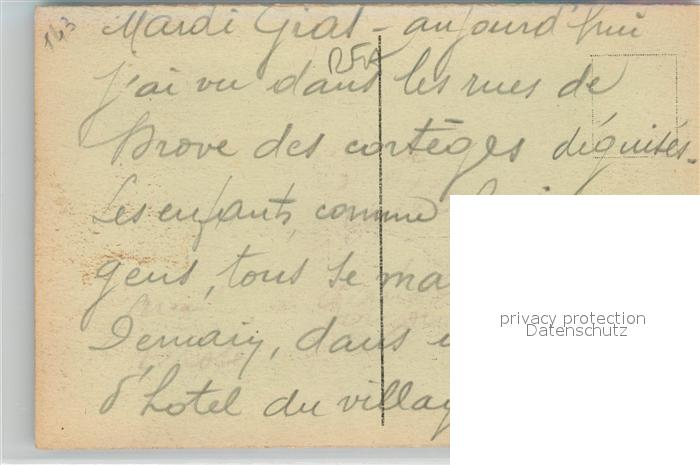 143
Mardi Gras - aujourd'hui
RFA
j'ai vu dans les rues de
des cortèges déguisés.
Les enfants, comme
gens, tous se ma
Demain, dans
d'hotel du villag
privacy protection
Datenschutz